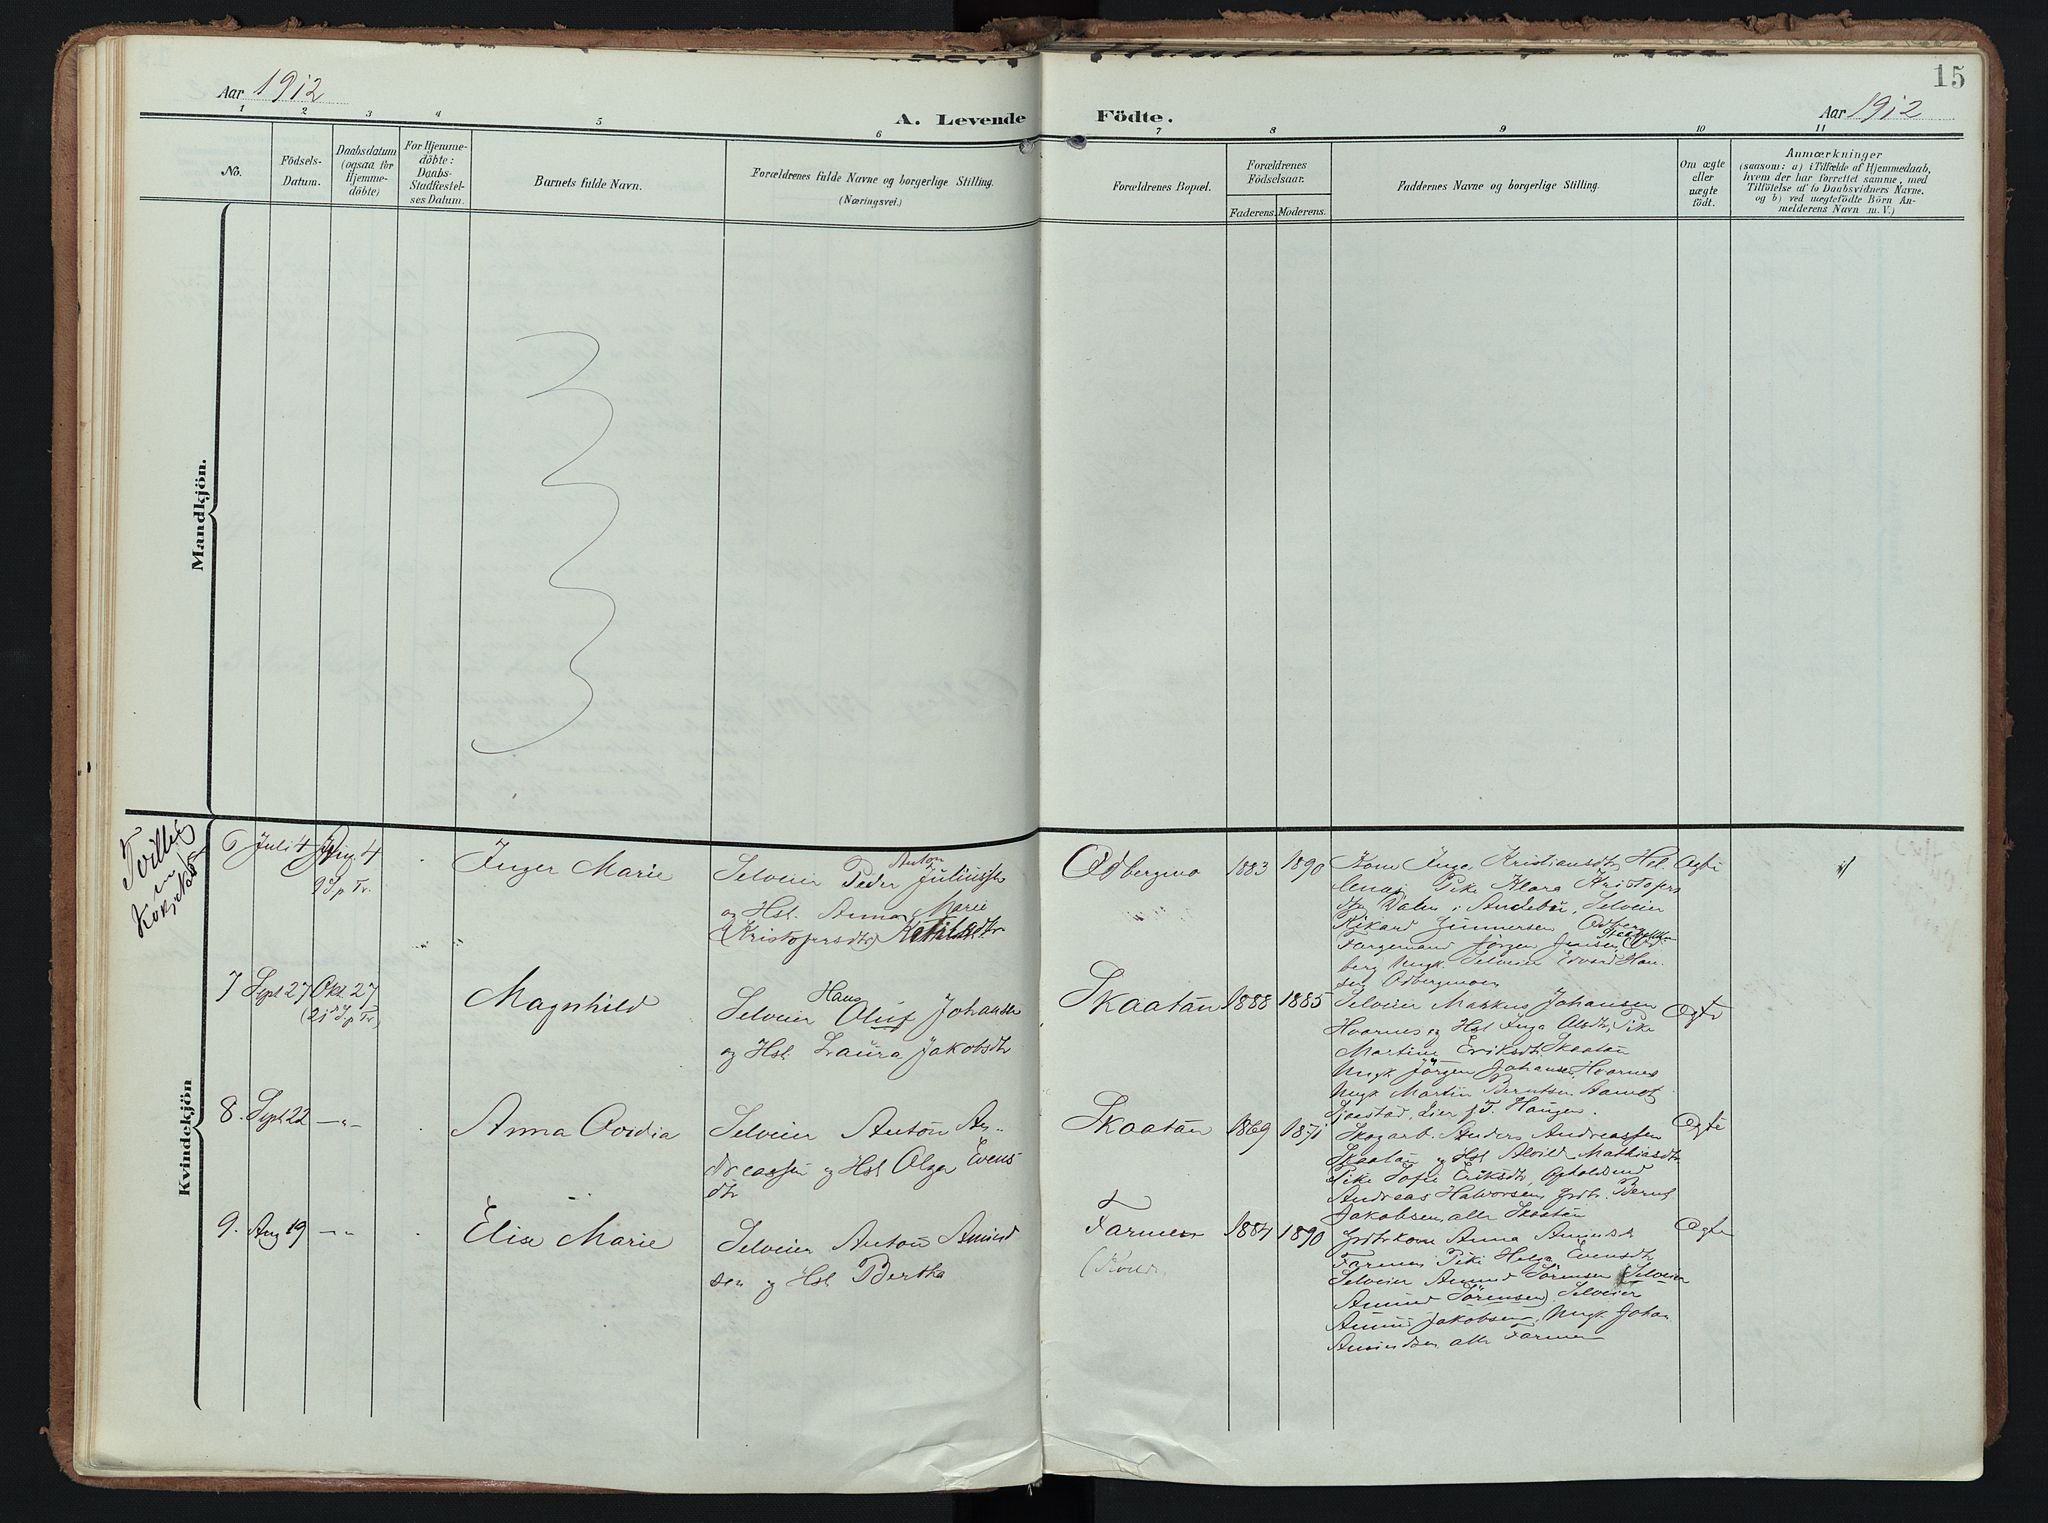 15
Aar 1912
Aar 1912
A. Levende Födte.
1 2 3 4 5 6 7 8 9 10 11
No.
Födsels-
Datum.
Daabsdatum
(ogsaa for
Hjemme-
döbte)
For Hjemme-
döbte:
Daabs-
Stadfæstel-
ses Datum.
Barnets fulde Navn.
Forældrenes fulde Navne og borgerlige Stilling.
(Næringsvei.)
Forældrenes Bopæl.
Forældrenes
Födselsaar.
Faderens. Moderens.
Faddernes Navne og borgerlige Stilling.
Om ægte
eller
uægte
födt.
Anmærkninger
(saasom: a) i Tilfælde af Hjemmedaab,
hvem der har forrettet samme, med
Tilföielse af to Daabsvidners Navne.
og b) ved uægtefödte Börn An-
melderens Navn m. V.)
Mandkjön.
Kvindekjön
Tvilling
6 Juli 4 Aug. 4
9 S p Tr.
Inger Marie
Selveier Peder Anton Juliussen
og Hst. Anna Marie
Kristofersdtr
Odbergmo 1883 1890
Kone Inga Kristiansdtr
Pike Klara Kristofers
dtr i Andebu, Selveier
Rikard Gunnersen Odberg
Fargemand Jörgen Jensen Od
berg Ungk. Selveier Edvard Han
sen Odbergmoen
Ægte
7 Sept 27 Okt. 27
(21 S p Tr.)
Magnhild
Selveier Hans Oluf Johansen
og Hst. Laura Jakobsdtr
Skaatan 1888 1885
Selveier Markus Johansen
Hvarnes og Hst Inga Olsdtr, Pike
Martine Eriksdtr Skaatan
Ungk Jörgen Johansen, Hvarnes
Ungk Martin Berntsen Aamot
Sjaastad, Lier f. T. Haugen.
Ægte
8. Sept 22 -"-
Anna Ovidia
Selveier Anton An-
dreassen og Hst Olga Evens
dtr
Skaatan 1869 1871
Skogarb. Anders Andreassen
Skaatan og Hst Alvild Mathiasdtr
Pike Sofie Eriksdtr, Opholdsmd
Andreas Halvorsen, Grdbr. Bernt
Jakobsen, alle Skaatan
Ægte
9. Aug 19 -"-
Elise Marie
Selveier Anton Amund
sen og Hst Bertha
Farmen 1884 1890
Grdbrkone Anna Amundsdtr
Farmen Pike Helga Evensdtr
Selveier Amund Sörensen (Selveier
Amund Sörensen) Selveier
Amund Jakobsen, Ungk Johan
Amundsen alle Farmen
Ægte